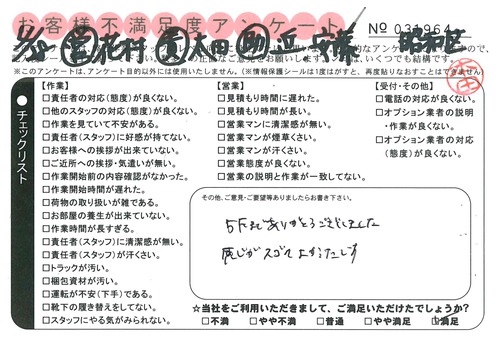 お客様不満足度アンケート
№ 031964
昭和区
※このアンケートは、アンケート目的以外には使用いたしません。(※情報保護シールは1度はがすと、再度貼りなおすことはできません)
チェックリスト
【作業】
□責任者の対応(態度)が良くない。
□他のスタッフの対応(態度)が良くない。
□作業を見ていて不安がある。
□責任者(スタッフ)に好感が持てない。
□お客様への挨拶が出来ていない。
□ご近所への挨拶・気遣いが無い。
□作業開始前の内容確認がなかった。
□作業開始時間が遅れた。
□荷物の取り扱いが雑である。
□お部屋の養生が出来ていない。
□作業時間が長すぎる。
□責任者(スタッフ)に清潔感が無い。
□責任者(スタッフ)が汗くさい。
□トラックが汚い。
□梱包資材が汚い。
□運転が不安(下手)である。
□靴下の履き替えをしてない。
□スタッフにやる気がみられない。
【営業】
□見積もり時間に遅れた。
□見積もり時間が長い。
□営業マンに清潔感が無い。
□営業マンが煙草くさい。
□営業マンが汗くさい。
□営業態度が良くない。
□営業の説明と作業が一致してない。
【受付・その他】
□電話の対応が良くない。
□オプション業者の説明・作業が良くない。
□オプション業者の対応(態度)が良くない。
その他、ご意見・ご要望等ありましたらお書き下さい。
ありがとうございました
感じがスゴくよかったです
☆当社をご利用いただきまして、ご満足いただけたでしょうか?
□不満 □やや不満 □普通 □やや満足 □満足